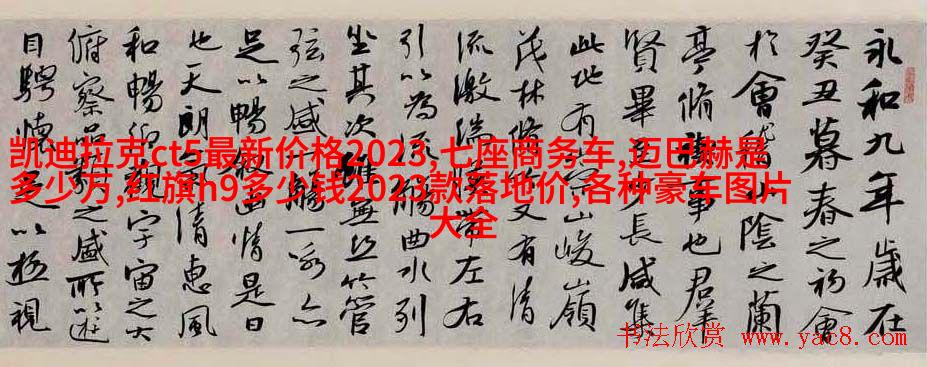 永和九年歲在
癸丑暮春之初會
於會稽山陰之蘭
亭脩禊事也群
賢畢至少長咸集
此地有崇山峻嶺
茂林脩竹又有清
流激湍帶左右
引以為流觴曲水列
坐其次雖無絲竹管
弦之盛一觴一詠亦
足以暢叙幽情是日
也天朗氣清惠風
和暢仰觀宇宙之大
俯察品類之盛所以遊
目騁懷足以極視
凯迪拉克ct5最新价格2023,七座商务车,迈巴赫是
多少万,红旗h9多少钱2023款落地价,各种豪车图片
大全
书法欣赏 www.yac8.com